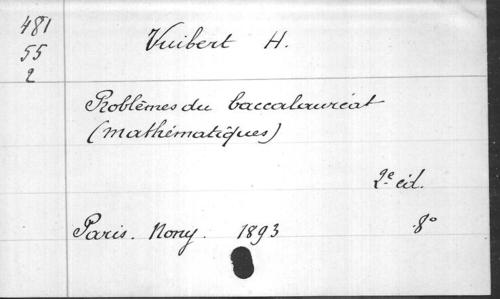 481
55
2
Vuibert H.
Problèmes du baccalauréat
(mathématiques)
2e éd.
Paris. Nony. 1893 8°